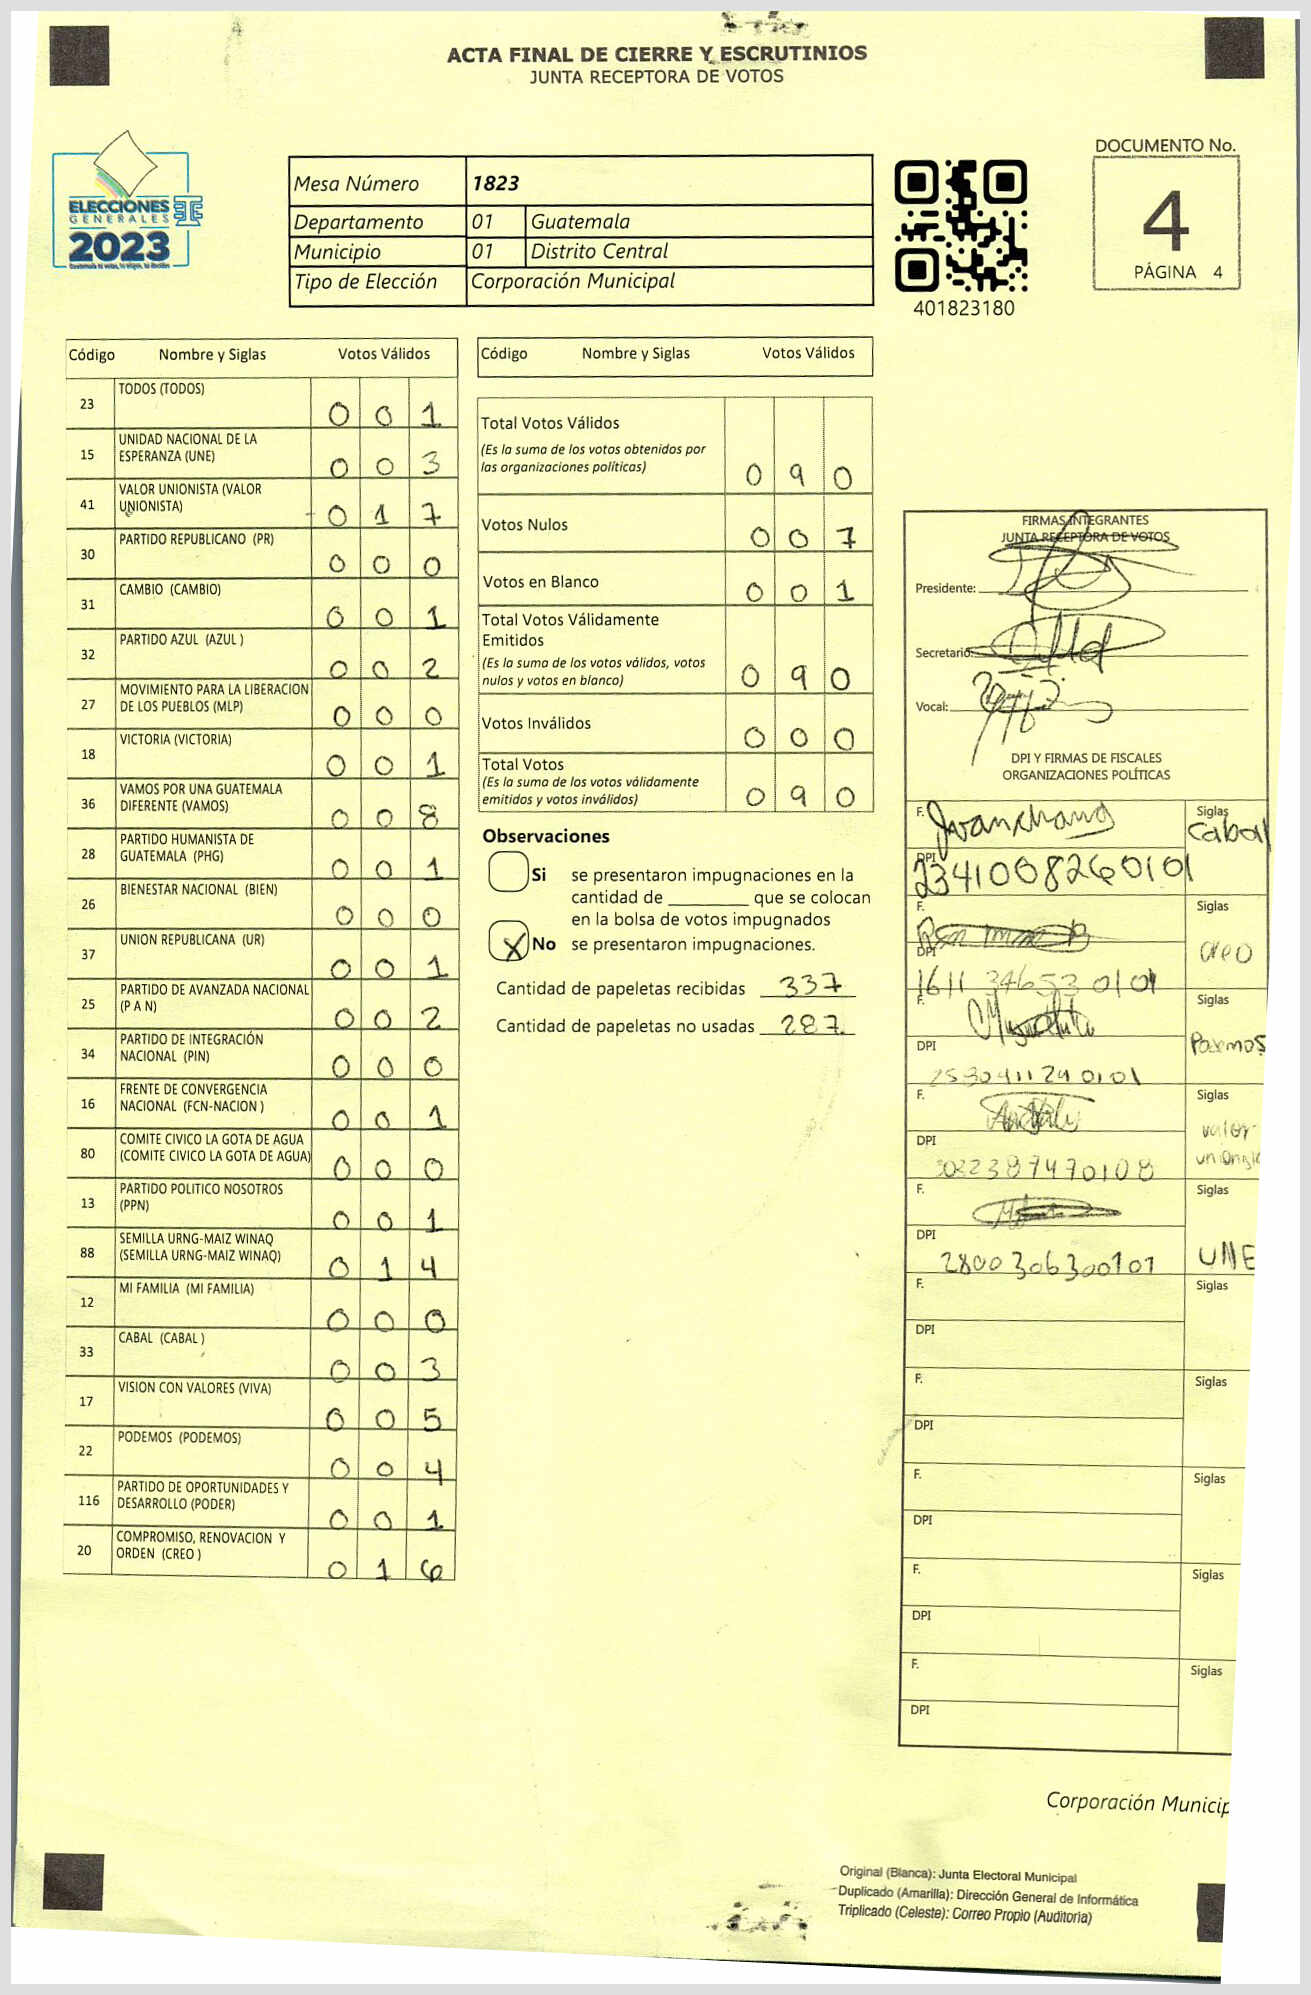 ACTA FINAL DE CIERRE Y ESCRUTINIOS
JUNTA RECEPTORA DE VOTOS
ELECCIONES
GENERALES
2023
Mesa Número 1823
Departamento 01 Guatemala
Municipio 01 Distrito Central
Tipo de Elección Corporación Municipal
401823180
DOCUMENTO No.
4
PÁGINA 4
Código Nombre y Siglas Votos Válidos
23 TODOS (TODOS) 0 0 1
15 UNIDAD NACIONAL DE LA
ESPERANZA (UNE) 0 0 3
41 VALOR UNIONISTA (VALOR
UNIONISTA) 0 1 7
30 PARTIDO REPUBLICANO (PR) 0 0 0
31 CAMBIO (CAMBIO) 0 0 1
32 PARTIDO AZUL (AZUL ) 0 0 2
27 MOVIMIENTO PARA LA LIBERACION
DE LOS PUEBLOS (MLP) 0 0 0
18 VICTORIA (VICTORIA) 0 0 1
36 VAMOS POR UNA GUATEMALA
DIFERENTE (VAMOS) 0 0 8
28 PARTIDO HUMANISTA DE
GUATEMALA (PHG) 0 0 1
26 BIENESTAR NACIONAL (BIEN) 0 0 0
37 UNION REPUBLICANA (UR) 0 0 1
25 PARTIDO DE AVANZADA NACIONAL
(P A N) 0 0 2
34 PARTIDO DE INTEGRACIÓN
NACIONAL (PIN) 0 0 0
16 FRENTE DE CONVERGENCIA
NACIONAL (FCN-NACION ) 0 0 1
80 COMITE CIVICO LA GOTA DE AGUA
(COMITE CIVICO LA GOTA DE AGUA) 0 0 0
13 PARTIDO POLITICO NOSOTROS
(PPN) 0 0 1
88 SEMILLA URNG-MAIZ WINAQ
(SEMILLA URNG-MAIZ WINAQ) 0 1 4
12 MI FAMILIA (MI FAMILIA) 0 0 0
33 CABAL (CABAL ) 0 0 3
17 VISION CON VALORES (VIVA) 0 0 5
22 PODEMOS (PODEMOS) 0 0 4
116 PARTIDO DE OPORTUNIDADES Y
DESARROLLO (PODER) 0 0 1
20 COMPROMISO, RENOVACION Y
ORDEN (CREO ) 0 1 6
Código Nombre y Siglas Votos Válidos
Total Votos Válidos
(Es la suma de los votos obtenidos por
las organizaciones políticas) 0 9 0
Votos Nulos 0 0 7
Votos en Blanco 0 0 1
Total Votos Válidamente
Emitidos
(Es la suma de los votos válidos, votos
nulos y votos en blanco) 0 9 0
Votos Inválidos 0 0 0
Total Votos
(Es la suma de los votos válidamente
emitidos y votos inválidos) 0 9 0
Observaciones
Si se presentaron impugnaciones en la
cantidad de ________ que se colocan
en la bolsa de votos impugnados
X No se presentaron impugnaciones.
Cantidad de papeletas recibidas 337
Cantidad de papeletas no usadas 287
FIRMAS INTEGRANTES
JUNTA RECEPTORA DE VOTOS
Presidente:
Secretario:
Vocal:
DPI Y FIRMAS DE FISCALES
ORGANIZACIONES POLÍTICAS
F. Siglas
cabal
DPI 2341008260101
F. Siglas
creo
DPI
1611 34653 0101
F. Siglas
Podemos
DPI
F. Siglas
valor
DPI
F. Siglas
DPI
2800306300101 UNE
F. Siglas
DPI
F. Siglas
DPI
F. Siglas
DPI
F. Siglas
DPI
F. Siglas
DPI
Corporación Municip
Original (Blanca): Junta Electoral Municipal
Duplicado (Amarilla): Dirección General de Informática
Triplicado (Celeste): Correo Propio (Auditoria)